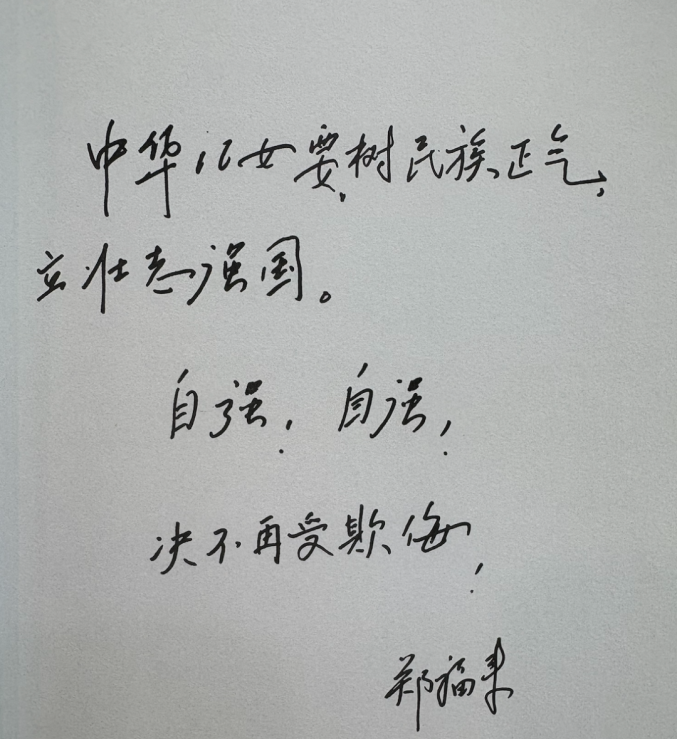 中华儿女要树民族正气，
立壮志强国。
自强，自强，
决不再受欺侮，
郑福来